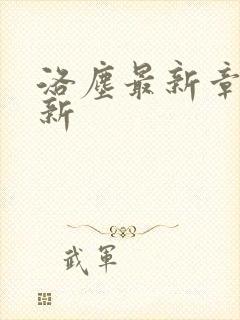 洛塵最新章
新
武軍